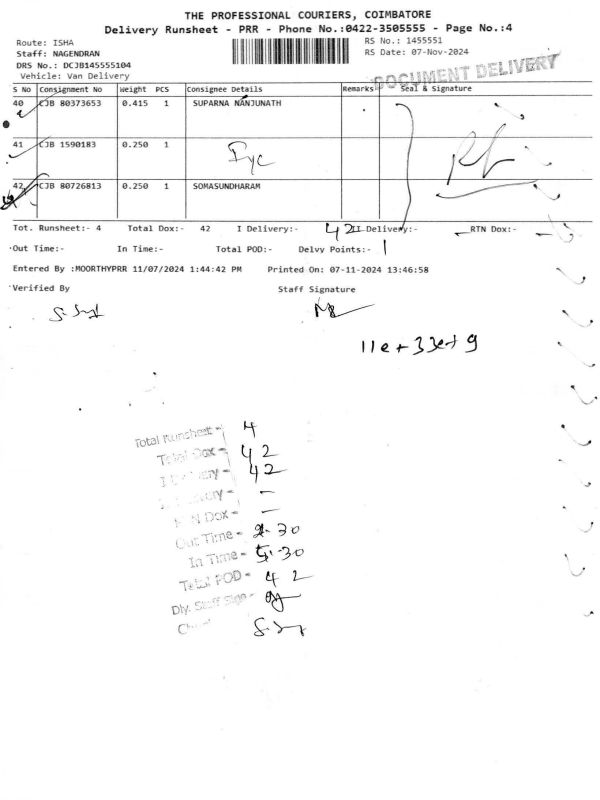 THE PROFESSIONAL COURIERS, COIMBATORE
Delivery Runsheet - PRR - Phone No.:0422-3505555 - Page No.:4
Route: ISHA
RS No.: 1455551
Staff: NAGENDRAN
RS Date: 07-Nov-2024
DRS No.: DCJB145555104
Vehicle: Van Delivery
DOCUMENT DELIVERY
S No Consignment No Weight PCS Consignee Details Remarks Seal & Signature
40 CJB 80373653 0.415 1 SUPARNA NANJUNATH
41 CJB 1590183 0.250 1
42 CJB 80726813 0.250 1 SOMASUNDHARAM
Tot. Runsheet:- 4 Total Dox:- 42 I Delivery:- 42 II Delivery:- RTN Dox:-
Out Time:- In Time:- Total POD:- Delvy Points:-
Entered By :MOORTHYPRR 11/07/2024 1:44:42 PM Printed On: 07-11-2024 13:46:58
Verified By Staff Signature
Total Runsheet - 4
Total Dox - 42
I Delivery - 42
Delivery - -
Dox - -
Out Time - 2-30
In Time - 5-30
Total POD - 42
Dly. Staff Sign -